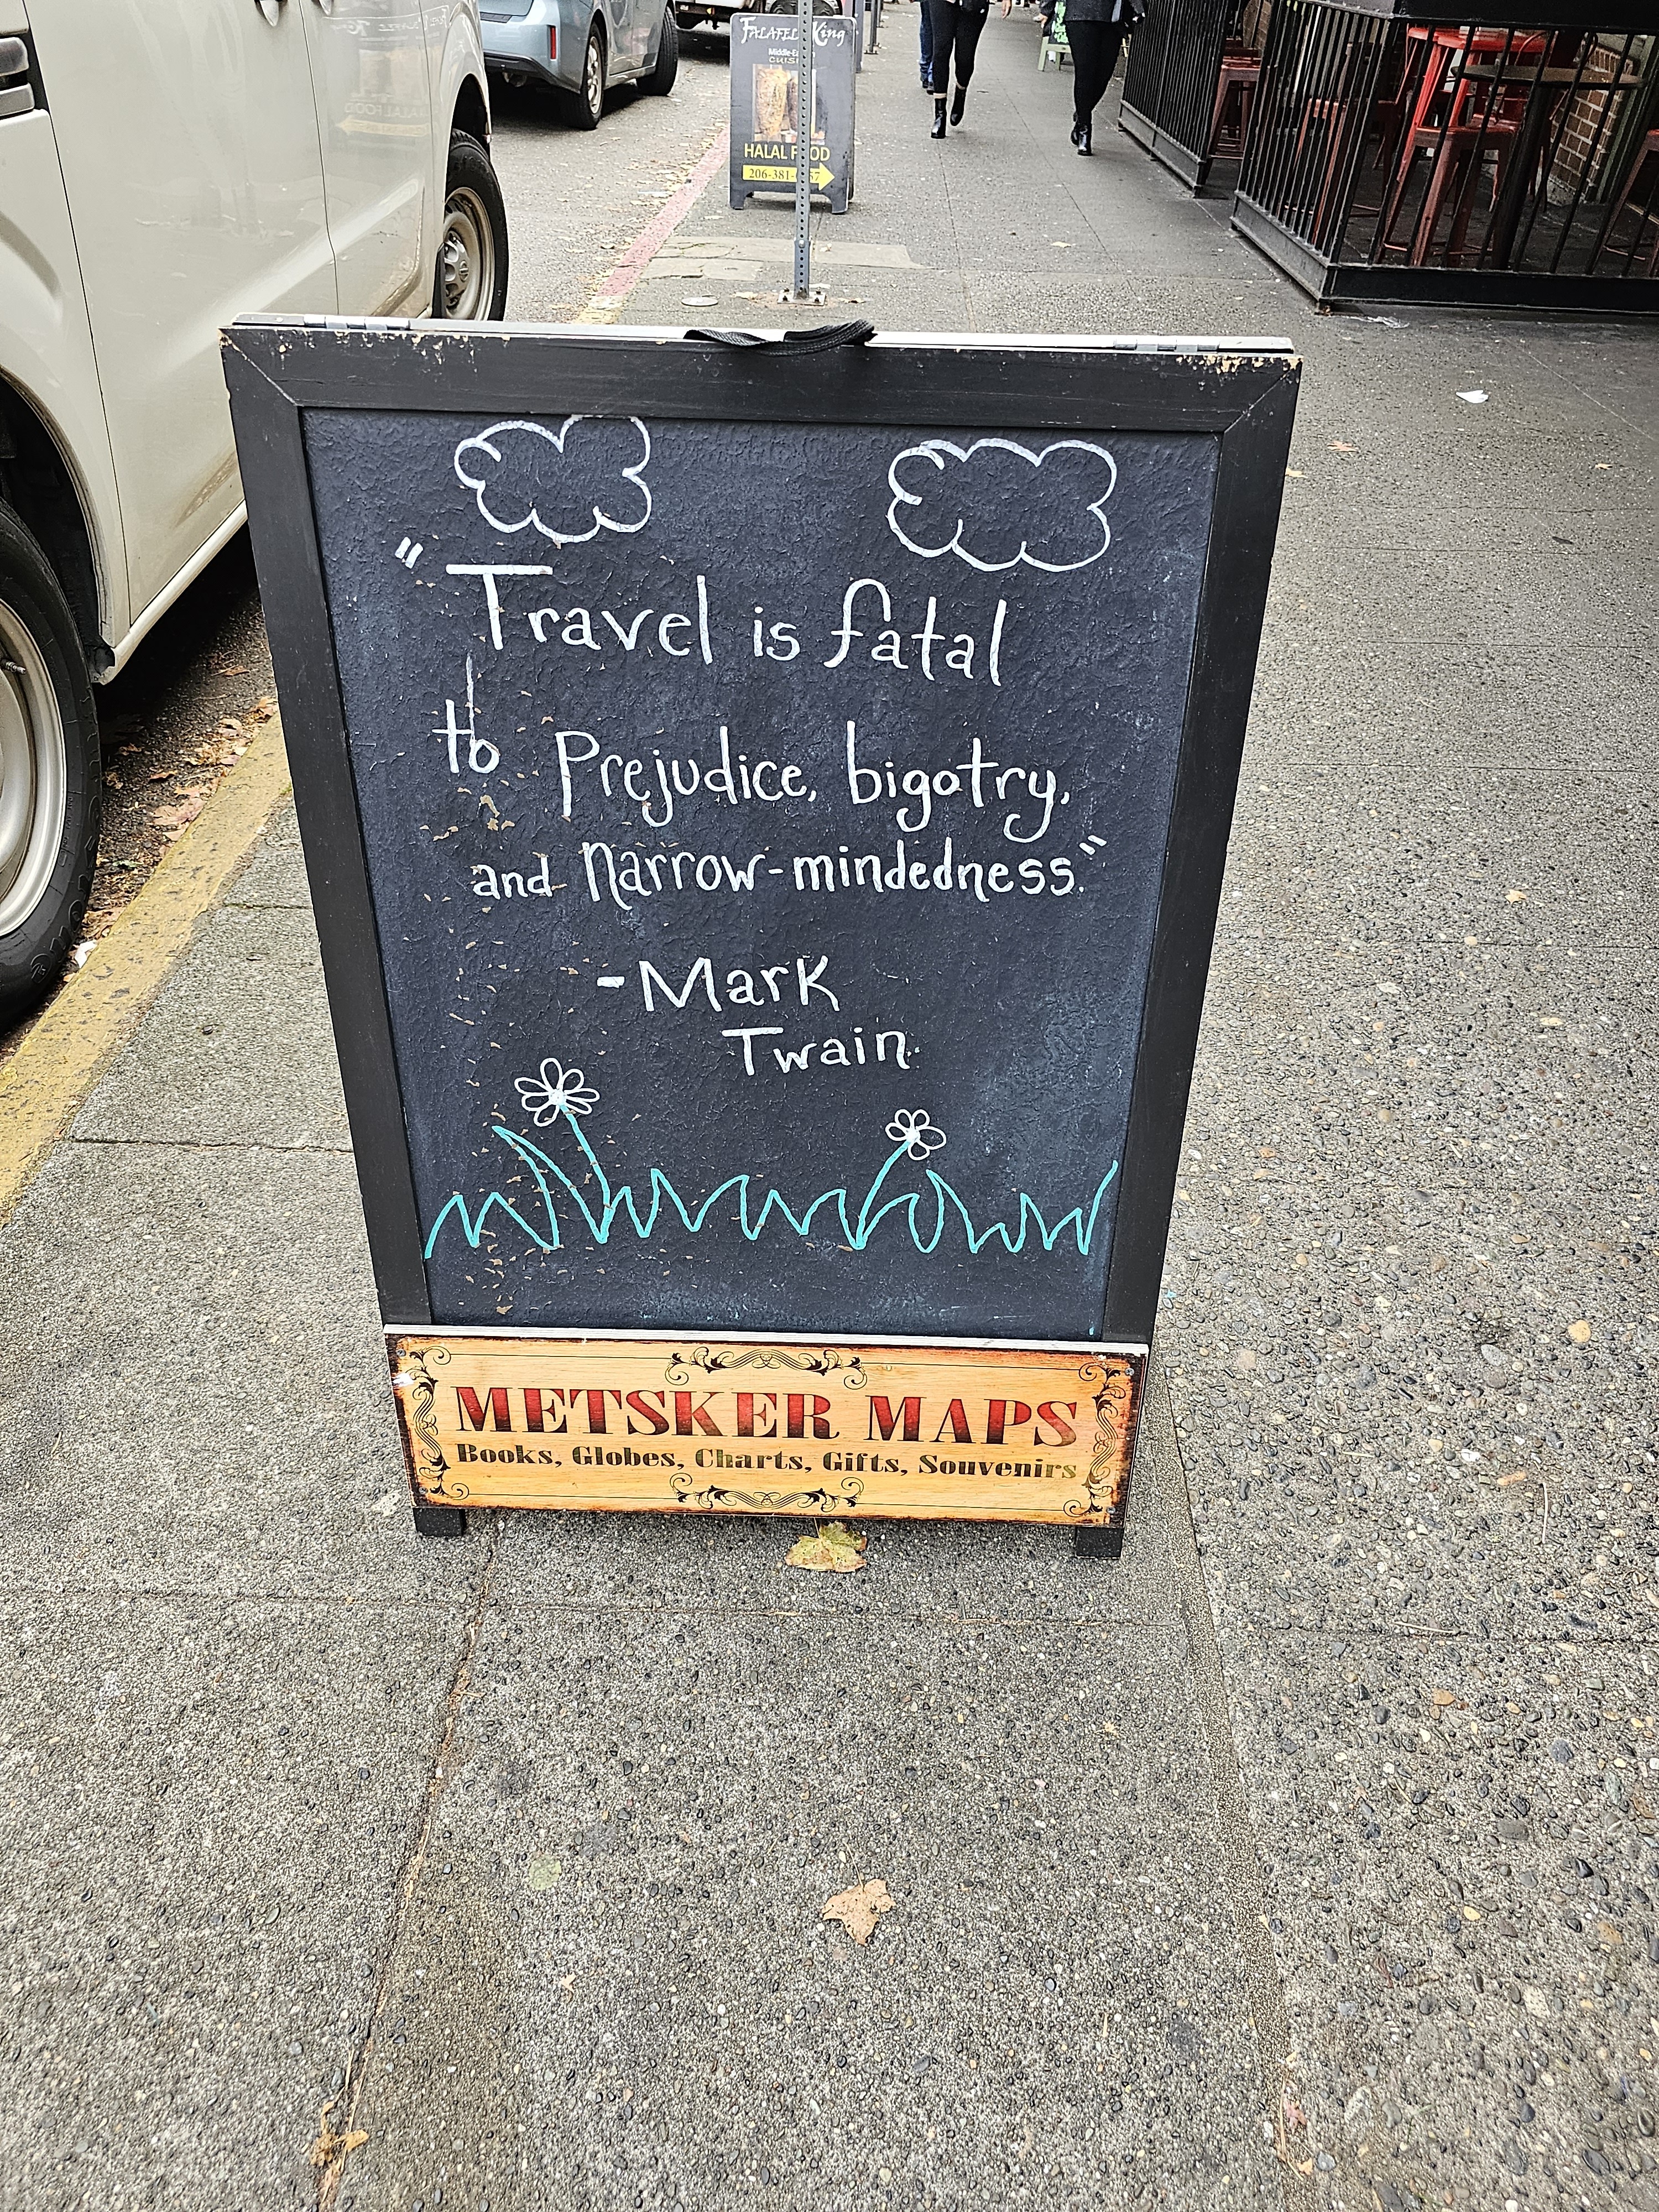 FALAFEL King
Middle-Ea
CUISI
HALAL FOOD
206-381-
"Travel is fatal
to Prejudice, bigotry,
and narrow-mindedness."
-Mark
Twain
METSKER MAPS
Books, Globes, Charts, Gifts, Souvenirs